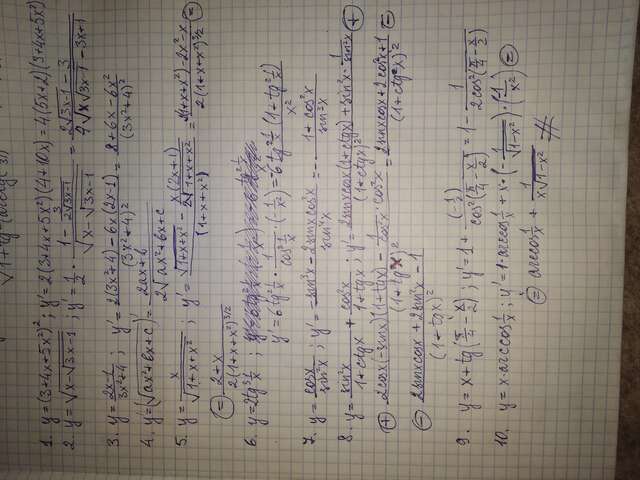 √1+tg²(arctg(3))
1. y=(3+4x+5x²)²; y'=2(3+4x+5x²)(4+10x)=4(5x+2)(3+4x+5x²)
2. y=√(x-√(3x-1)); y'=1/2 · (1-3/(2√(3x-1)))/√(x-√(3x-1)) = (2√(3x-1)-3)/(4√(x√(3x-1)-3x+1))
3. y=(2x-1)/(3x²+4); y'=(2(3x²+4)-6x(2x-1))/(3x²+4)²=(8+6x-6x²)/(3x²+4)²
4. y=(√(ax²+bx+c))'=(2ax+b)/(2√(ax²+bx+c))
5. y=x/√(1+x+x²); y'=(√(1+x+x²)-x(2x+1)/(2√(1+x+x²)))/(1+x+x²)=(2(1+x+x²)-2x²-x)/(2(1+x+x²)^3/2) =
= (2+x)/(2(1+x+x²)^3/2)
6. y=2tg³1/x;
y'=6tg²1/x · 1/cos²1/x · (-1/x²)=-6 tg²1/x (1+tg²1/x)/x²
7. y=cosx/sin²x; y'=(-sin³x-2sinxcos²x)/sin⁴x=-(1+cos²x)/sin³x
8. y=sin²x/(1+ctgx)+cos²x/(1+tgx); y'=(2sinxcosx(1+ctgx)+sin²x·1/sin²x)/(1+ctgx)² +
+ (2cosx(-sinx)(1+tgx)-1/cos²x·cos²x)/(1+tgx)²=(2sinxcosx+2cos²x+1)/(1+ctgx)² =
- (2sinxcosx+2sin²x-1)/(1+tgx)²
9. y=x+tg(π/4-x/2); y'=1+(-1/2)/cos²(π/4-x/2)=1-1/(2cos²(π/4-x/2))
10. y=x·arccos1/x; y'=1·arccos1/x+x·(-1/√(1-x²))·(-1/x²) =
= arccos1/x+1/(x√(1-x²)) #